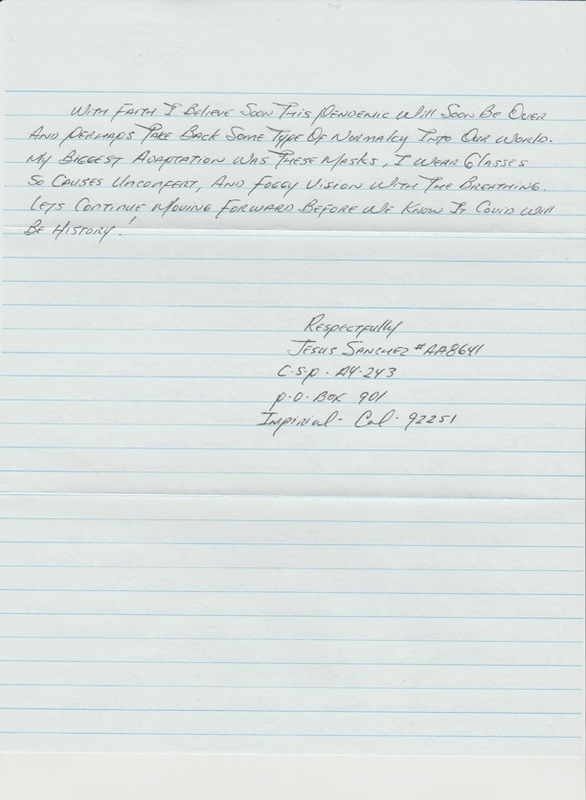 With Faith I Believe Soon This Pendemic Will Soon Be Over
And Perhaps Take Back Some Type Of Normalcy Into Our World.
My Biggest Adaptation Was These Masks, I Wear Glasses
So Causes Uncomfert, And Foggy Vision With The Breathing.
Lets Continue Moving Forward Before We Know It Covid Will
Be History!
Respectfully
Jesus Sanchez #AA8641
C.S.P. A4-243
P.O. Box 901
Impirial- Cal- 92251